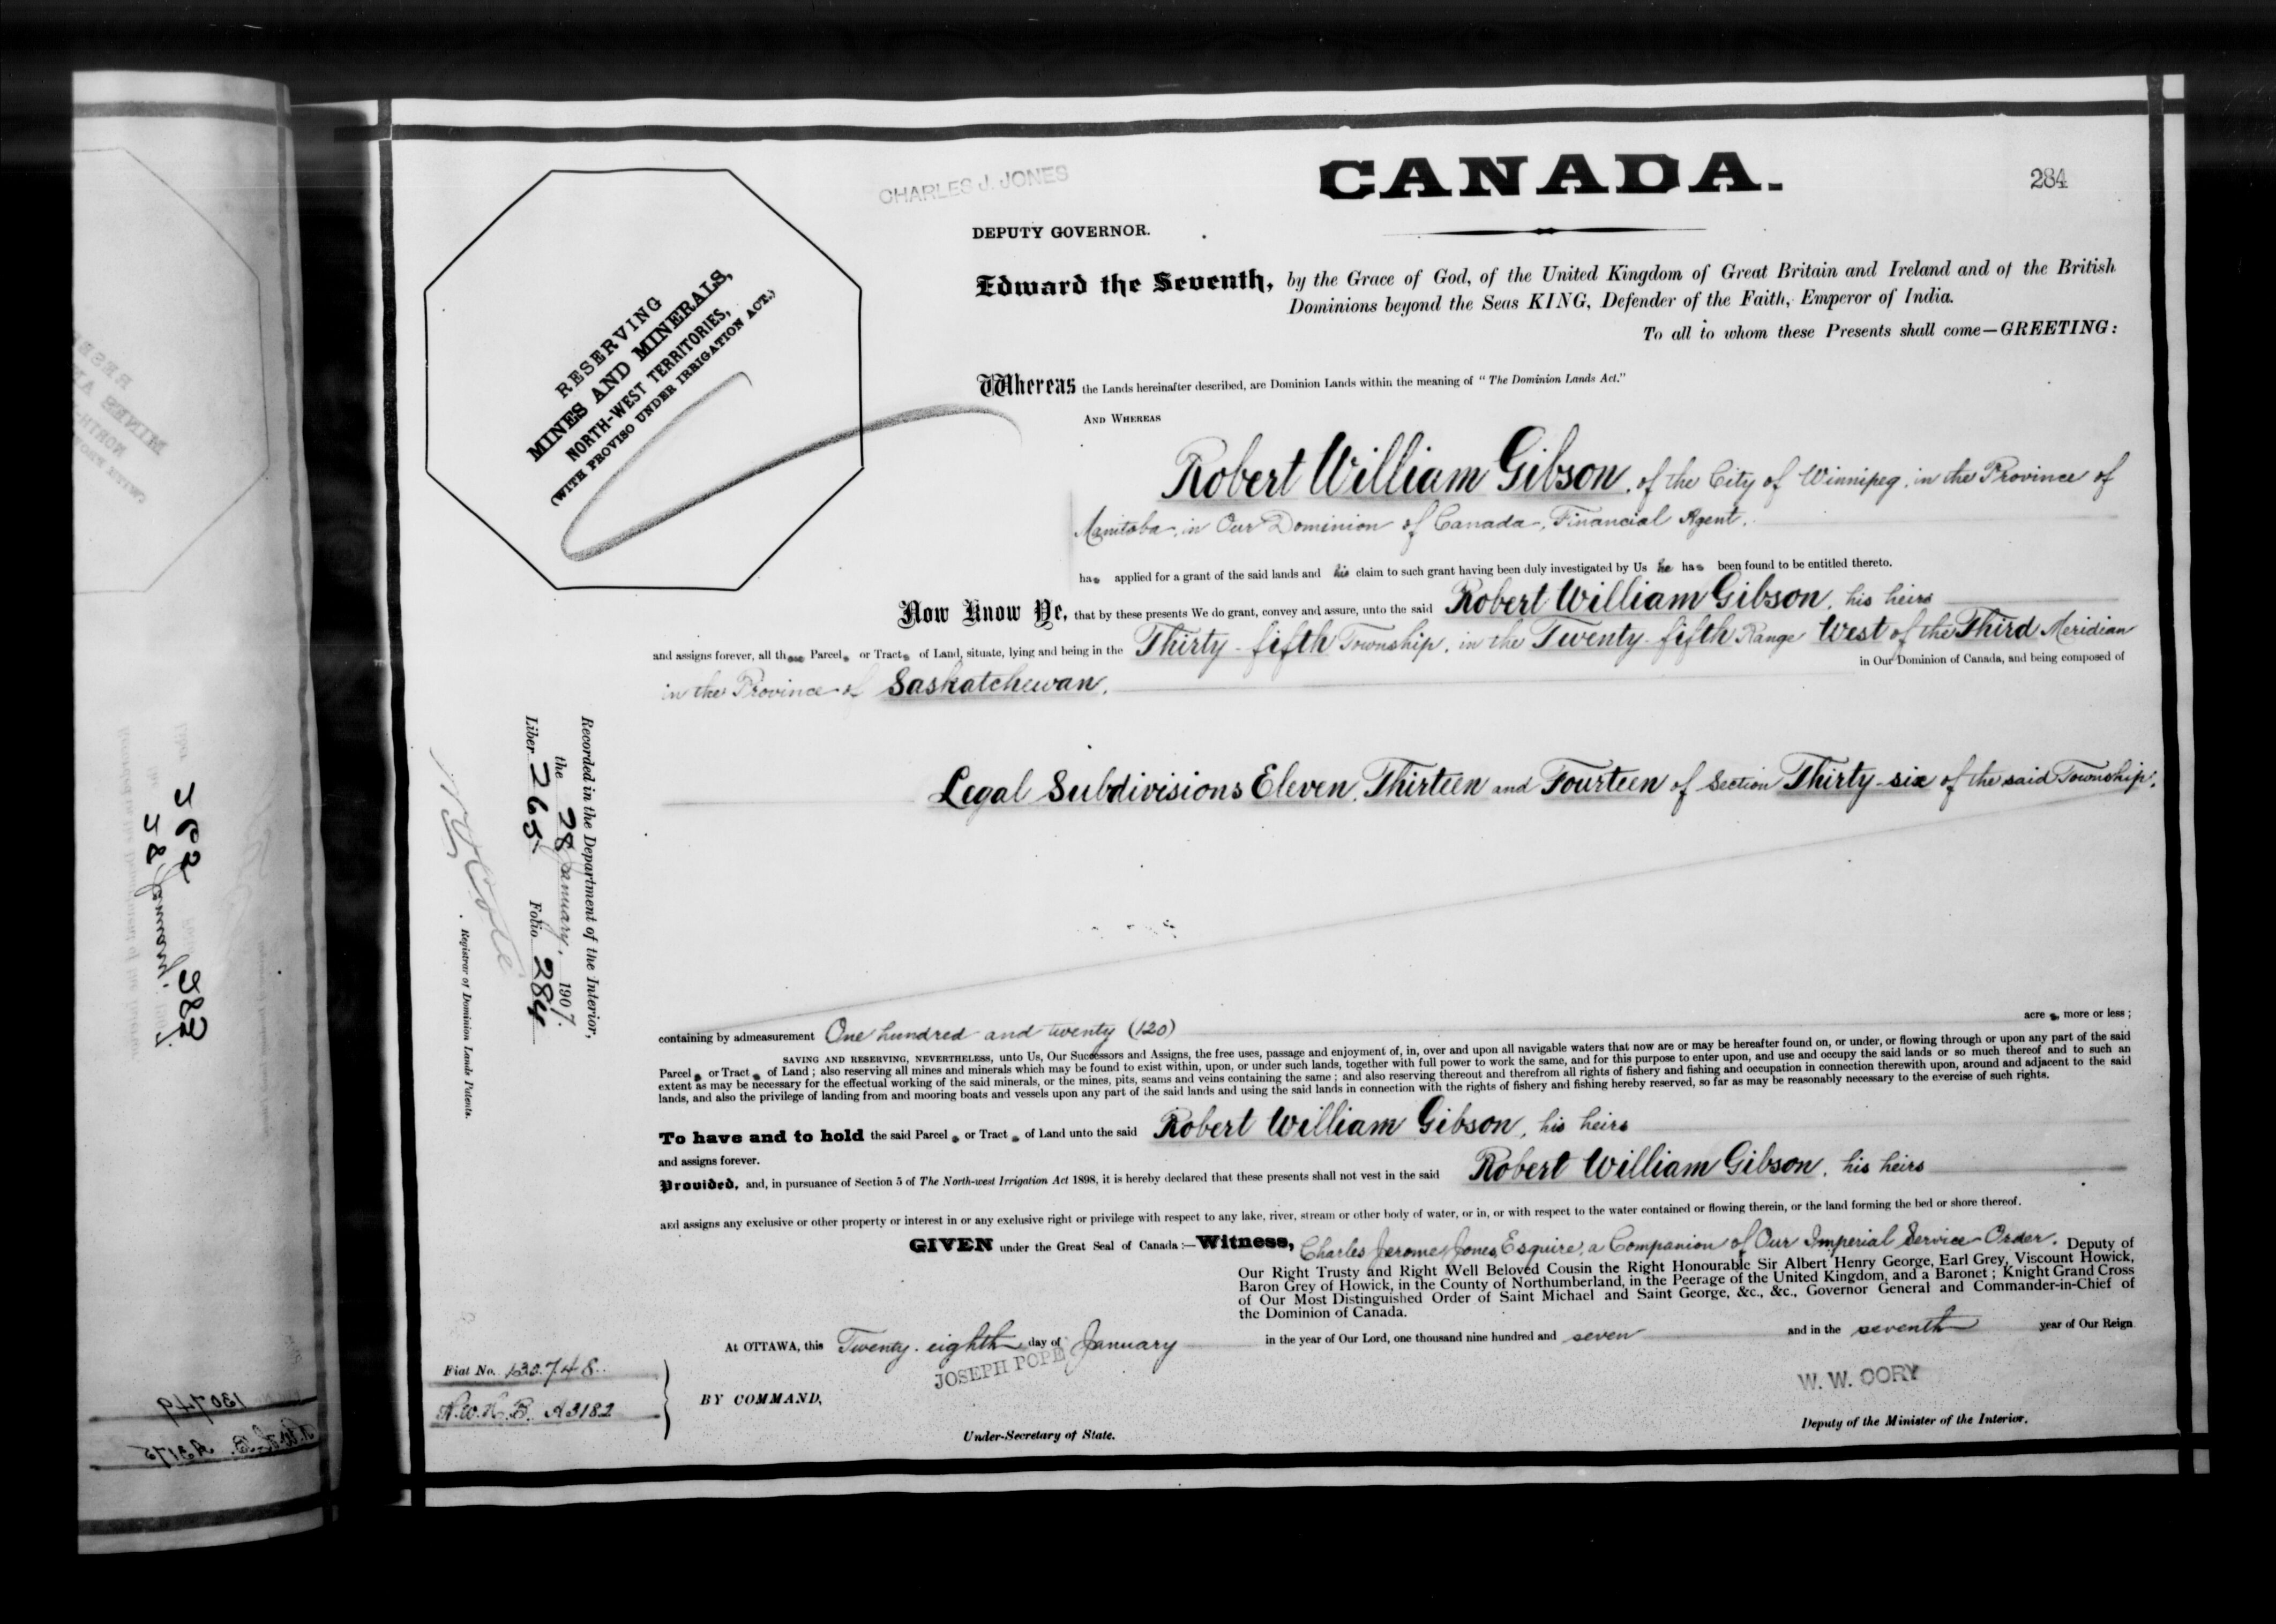 CHARLES J. JONES
CANADA.
284
DEPUTY GOVERNOR.
Edward the Seventh, by the Grace of God, of the United Kingdom of Great Britain and Ireland and of the British
Dominions beyond the Seas KING, Defender of the Faith, Emperor of India.
To all to whom these Presents shall come—GREETING:
RESERVING
MINES AND MINERALS,
NORTH-WEST TERRITORIES,
(WITH PROVISO UNDER IRRIGATION ACT.)
Whereas the Lands hereinafter described, are Dominion Lands within the meaning of "The Dominion Lands Act."
AND WHEREAS
Robert William Gibson, of the City of Winnipeg, in the Province of
Manitoba, in Our Dominion of Canada, Financial Agent.
has applied for a grant of the said lands and his claim to such grant having been duly investigated by Us he has been found to be entitled thereto.
Now Know Ye, that by these presents We do grant, convey and assure, unto the said Robert William Gibson, his heirs
and assigns forever, all those Parcels or Tracts of Land, situate, lying and being in the Thirty-fifth Township, in the Twenty-fifth Range West of the Third Meridian
in the Province of Saskatchewan, in Our Dominion of Canada, and being composed of
Legal Subdivisions Eleven, Thirteen and Fourteen of Section Thirty-six of the said Township,
Recorded in the Department of the Interior,
the 28 January, 1907.
Liber 265 Folio 284
N O Coté
Registrar of Dominion Lands Patents.
containing by admeasurement One hundred and twenty (120) acres, more or less;
SAVING AND RESERVING, NEVERTHELESS, unto Us, Our Successors and Assigns, the free uses, passage and enjoyment of, in, over and upon all navigable waters that now are or may be hereafter found on, or under, or flowing through or upon any part of the said
Parcels or Tracts of Land; also reserving all mines and minerals which may be found to exist within, upon, or under such lands, together with full power to work the same, and for this purpose to enter upon, and use and occupy the said lands or so much thereof and to such an
extent as may be necessary for the effectual working of the said minerals, or the mines, pits, seams and veins containing the same; and also reserving thereout and therefrom all rights of fishery and fishing and occupation in connection therewith upon, around and adjacent to the said
lands, and also the privilege of landing from and mooring boats and vessels upon any part of the said lands and using the said lands in connection with the rights of fishery and fishing hereby reserved, so far as may be reasonably necessary to the exercise of such rights.
To have and to hold the said Parcels or Tracts of Land unto the said Robert William Gibson, his heirs
and assigns forever.
Provided, and, in pursuance of Section 5 of The North-west Irrigation Act 1898, it is hereby declared that these presents shall not vest in the said Robert William Gibson, his heirs
and assigns any exclusive or other property or interest in or any exclusive right or privilege with respect to any lake, river, stream or other body of water, or in, or with respect to the water contained or flowing therein, or the land forming the bed or shore thereof.
GIVEN under the Great Seal of Canada:—Witness, Charles Jerome Jones, Esquire, a Companion of Our Imperial Service Order, Deputy of
Our Right Trusty and Right Well Beloved Cousin the Right Honourable Sir Albert Henry George, Earl Grey, Viscount Howick,
Baron Grey of Howick, in the County of Northumberland, in the Peerage of the United Kingdom, and a Baronet; Knight Grand Cross
of Our Most Distinguished Order of Saint Michael and Saint George, &c., &c., Governor General and Commander-in-Chief of
the Dominion of Canada.
At OTTAWA, this Twenty-eighth day of January in the year of Our Lord, one thousand nine hundred and seven and in the seventh year of Our Reign
JOSEPH POPE
W. W. CORY
Fiat No. 130748
N.W.H.B. A3182
BY COMMAND,
Under-Secretary of State.
Deputy of the Minister of the Interior.